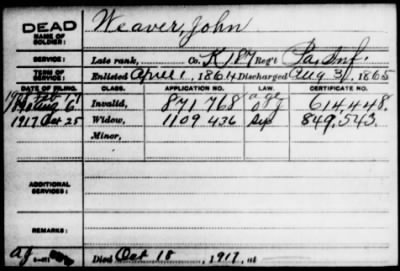 DEAD Weaver, John
NAME OF SOLDIER:
SERVICE: Late rank, Co. K, 187 Reg't Pa. Inf.
TERM OF SERVICE: Enlisted April 1, 1864 Discharged Aug 3, 1865
DATE OF FILING. CLASS. APPLICATION NO. LAW. CERTIFICATE NO.
Invalid, 871768 614448.
1917 Oct 25 Widow, 1109436 849,543.
Minor,
ADDITIONAL SERVICES:
REMARKS:
Died Oct 18, 1917, at